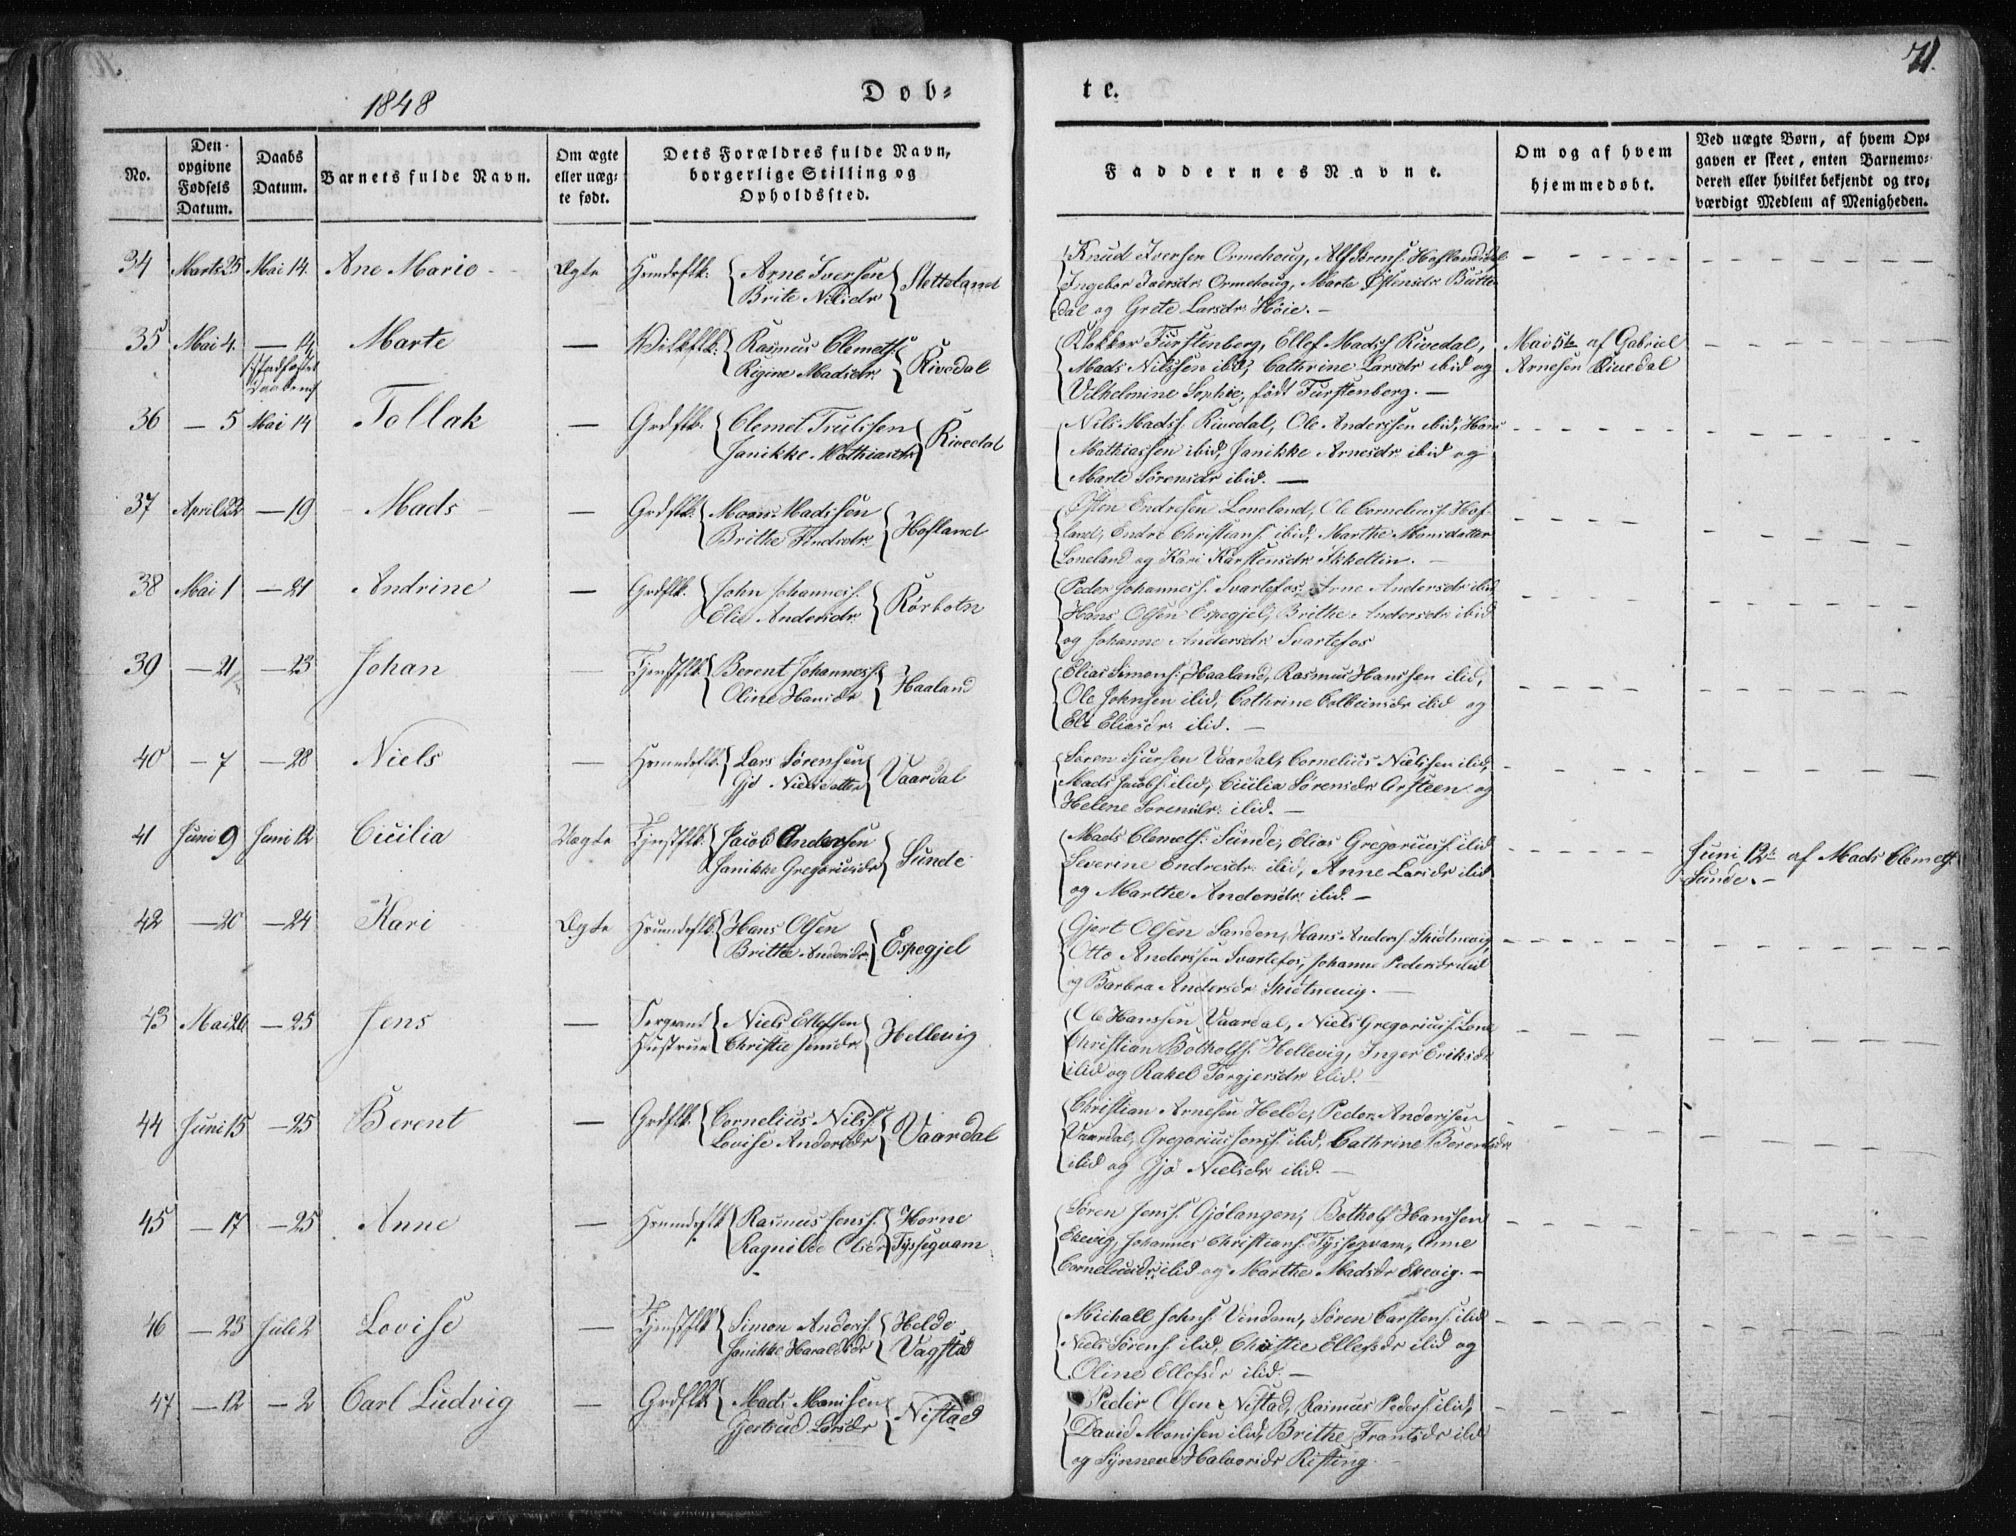 1848
Døb=
te.
71.
No.
Den opgivne Fødsels Datum.
Daabs Datum.
Barnets fulde Navn.
Om ægte eller uæg= te født.
Dets Forældres fulde Navn, borgerlige Stilling og Opholdssted.
Faddernes Navne.
Om og af hvem hjemmedøbt.
Ved uægte Børn, af hvem Op= gaven er skeet, enten Barnemo= deren eller hvilket bekjendt og tro= værdigt Medlem af Menigheden.
34 Marts 25 Mai 14. Ane Marie Ægte Huusmdsflk. Arne Iversen
Brite Nilsdr. Sletteland
Knud Iversen Ormehoug, Alf Sørens. Hoflandsdal
Ingebor Iversdr. Ormehoug, Marte Østensdr. Butte
dal og Grete Larsdr. Høie. —
35 Mai 4. — 14 Marte — Rasmus Clemets.
Rigine Madsdr. Rivedal
Klokker Fürstenberg, Ellef Mads. Rivedal,
Mads Nilssen ibid, Cathrine Larsdr ibid og
Vilhelmine Sophie, født Fürstenberg. —
Mai 5te af Gabriel
Arnesen Rivedal
Stadfæstet
Daaben
36 — 5 Mai 14 Tollak — Grdflk. Clemet Trulssen
Janikke Mathiasdr. Rivedal
Nils Mads. Rivedal, Ole Anderssen ibid, Hans
Mathiassen ibid, Janikke Arnesdr ibid og
Marte Sørensdr ibid. —
37 April 22 — 19 Mads — Grdflk. Mons Madssen
Brithe Findsdr. Hofland
Østen Endresen Loneland, Ole Cornelius. Hof-
land, Endre Christians. ibid, Marthe Monsdatter
Loneland og Kari Karstensdr. —
38 Mai 1 — 21 Andrine — Grdflk. John Johannes.
Elie Andersdr. Rørbotn
Peder Johanness. Svartefos, Arne Andersdr. ibid
Hans Olsen Espegjel, Brithe Andersdr ibid
og Johanne Andersdr. Svartefos
39 — 21 — 23 Johan — Tjenstflk. Berent Johanness.
Oline Hansdr Haaland
Elias Simons. Haaland, Rasmus Hanssen ibid,
Ole Johnsen ibid, Cathrine Colbeinsdr ibid og
Eli Eliasdr. ibid. —
40 — 7 — 28 Niels — Huusmdsflk. Lars Sørensen
Gjø Nielsdatter Vaardal
Søren Sjursen Vaardal, Cornelius Nielssen ibid,
Mads Jacobs. ibid, Cicilia Sørensdr Arsteen og
Helene Sørensdr. ibid. —
41 Juni 9 Juni 12 Cicilia Uægte Tjenstflk. Jacob Andersen
Janikke Gregoriusdr Sunde
Mads Clemets. Sunde, Elias Gregorius. ibid
Severine Endresdr. ibid, Anne Larsdr ibid
og Marthe Andersdr. ibid. —
Juni 12te af Mads Clemets.
Sunde. —
42 — 20 — 24 Kari Ægte Huusmdsflk. Hans Olsen
Brithe Andersdr. Espegjel
Gjert Olsen Sanden, Hans Anders. Skiotnevig,
Otto Anderssen Svartefos, Johanne Pedersdr ibid
og Barbra Andersdr. Skiotnevig. —
43 Mai 26 — 25 Jens — Sergeant Niels Ellefsen
Hustrue Christie Jensdr. Hellevig
Ole Hanssen Vaardal, Niels Gregorius. Lone
Christian Botholfs. Hellevig, Inger Eriksdr
ibid og Rakel Torgjersdr. ibid.
44 Juni 15 — 25 Berent — Grdflk. Cornelius Nils.
Lovise Andersdr Vaardal
Christian Arnesen Helde, Peder Anderssen
Vaardal, Gregorius Jens. ibid, Cathrine Berentsdr.
ibid og Gjø Nielsdr. ibid. —
45 — 17 — 25 Anne — Huusmdsflk. Rasmus Jens.
Ragnilde Olsdr Horne
Tyssegvam
Søren Jens. Gjølangen, Botholf Hanssen
Ekevig, Johannes Christians. Tyssegvam, Anne
Corneliusdr. ibid og Marthe Madsdr Ekevig. —
46 — 23 Juli 2 Lovise — Tjenstflk Simon Anders.
Janikke Haraldsdr Helde
Vagstad
Michall Johns. Vindam, Søren Carstens. ibid
Niels Sørens. ibid, Christie Ellefsdr ibid og
Oline Ellefsdr ibid. —
47 — 12 — 2 Carl Ludvig — Grdflk. Mads Monssen
Gjertrud Larsdr Nistad
Peder Olsen Nistad, Rasmus Peders. ibid,
David Monssen ibid, Brithe Frantsdr ibid
og Synneve Halvorsdr Risting.